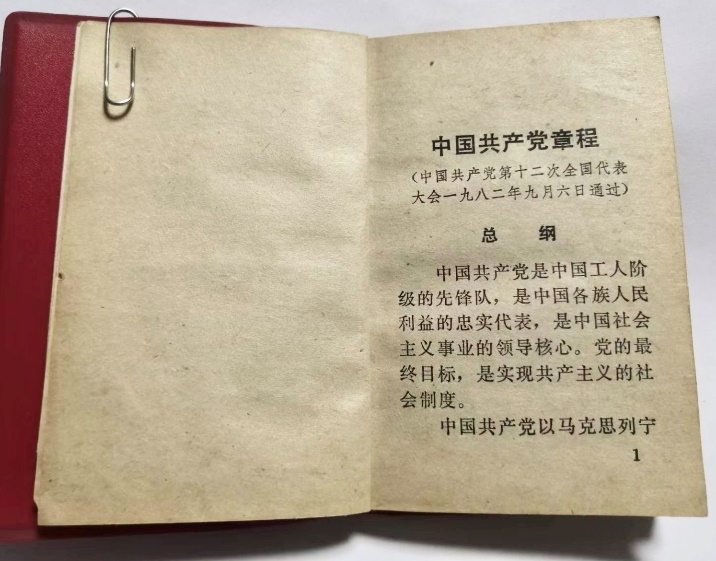 中国共产党章程
（中国共产党第十二次全国代表
大会一九八二年九月六日通过）
总 纲
中国共产党是中国工人阶
级的先锋队，是中国各族人民
利益的忠实代表，是中国社会
主义事业的领导核心。党的最
终目标，是实现共产主义的社
会制度。
中国共产党以马克思列宁
1